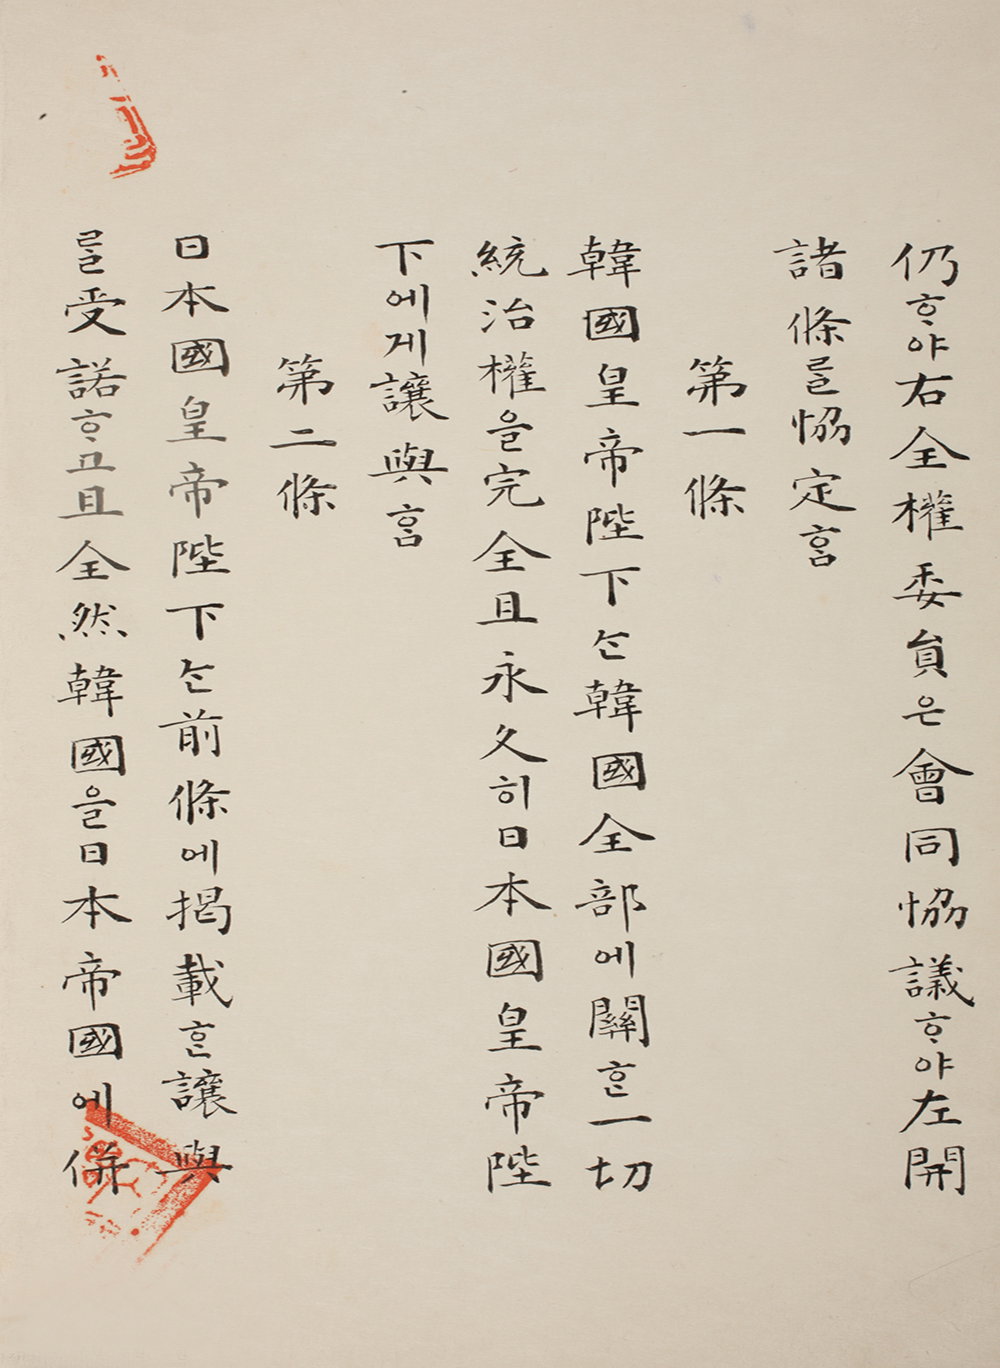 仍ᄒᆞ야右全權委員은會同恊議ᄒᆞ야左開
諸條를恊定홈
第一條
韓國皇帝陛下ᄂᆞᆫ韓國全部에關ᄒᆞᆫ一切
統治權을完全且永久히日本國皇帝陛
下에게讓與홈
第二條
日本國皇帝陛下ᄂᆞᆫ前條에揭載ᄒᆞᆫ讓與
를受諾ᄒᆞ고且全然韓國을日本帝國에倂